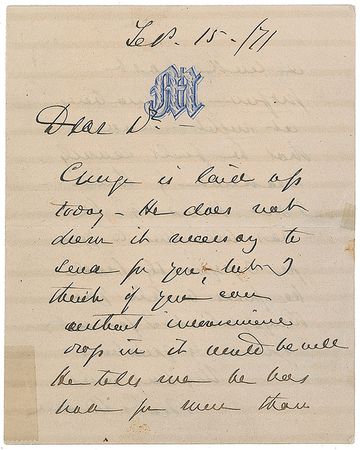 Sep. 15 - /71
M
Dear Dr. -
is laid up
today - He does not
deem it necessary to
send for you, but I
think if you can
without inconvenience
drop in it would be well
He tells me he has
had for more than